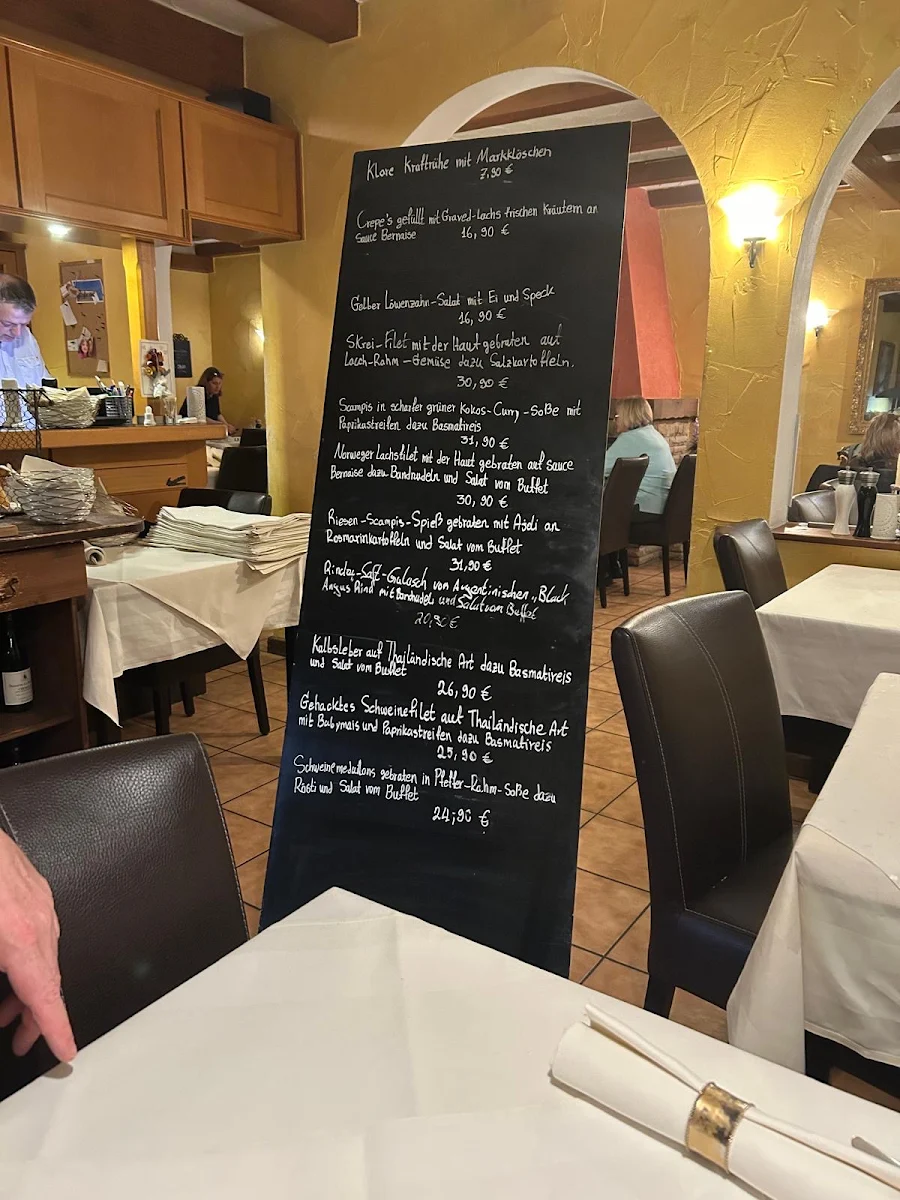 Klare Kraftrühe mit Markklöschen
7,90 €
Crepe's gefüllt mit Graved-Lachs frischen Kräutern an
Sauce Bernaise 16,90 €
Gelber Löwenzahn-Salat mit Ei und Speck
16,90 €
Skrei-Filet mit der Haut gebraten auf
Lauch-Rahm-Gemüse dazu Salzkartoffeln.
30,90 €
Scampis in scharfer grüner Kokos-Curry-Soße mit
Paprikastreifen dazu Basmatireis
31,90 €
Norweger Lachsfilet mit der Haut gebraten auf Sauce
Bernaise dazu Bandnudeln und Salat vom Buffet
30,90 €
Riesen-Scampis-Spieß gebraten mit Ajoli an
Rosmarinkartoffeln und Salat vom Buffet
31,90 €
Rinder-Saft-Gulasch vom Argentinischen „Black
Angus Rind mit Bandnudeln und Salat vom Buffet
20,90 €
Kalbsleber auf Thailändische Art dazu Basmatireis
und Salat vom Buffet
26,90 €
Gehacktes Schweinefilet auf Thailändische Art
mit Babymais und Paprikastreifen dazu Basmatireis
25,90 €
Schweinemedaillons gebraten in Pfeffer-Rahm-Soße dazu
Rösti und Salat vom Buffet
24,90 €